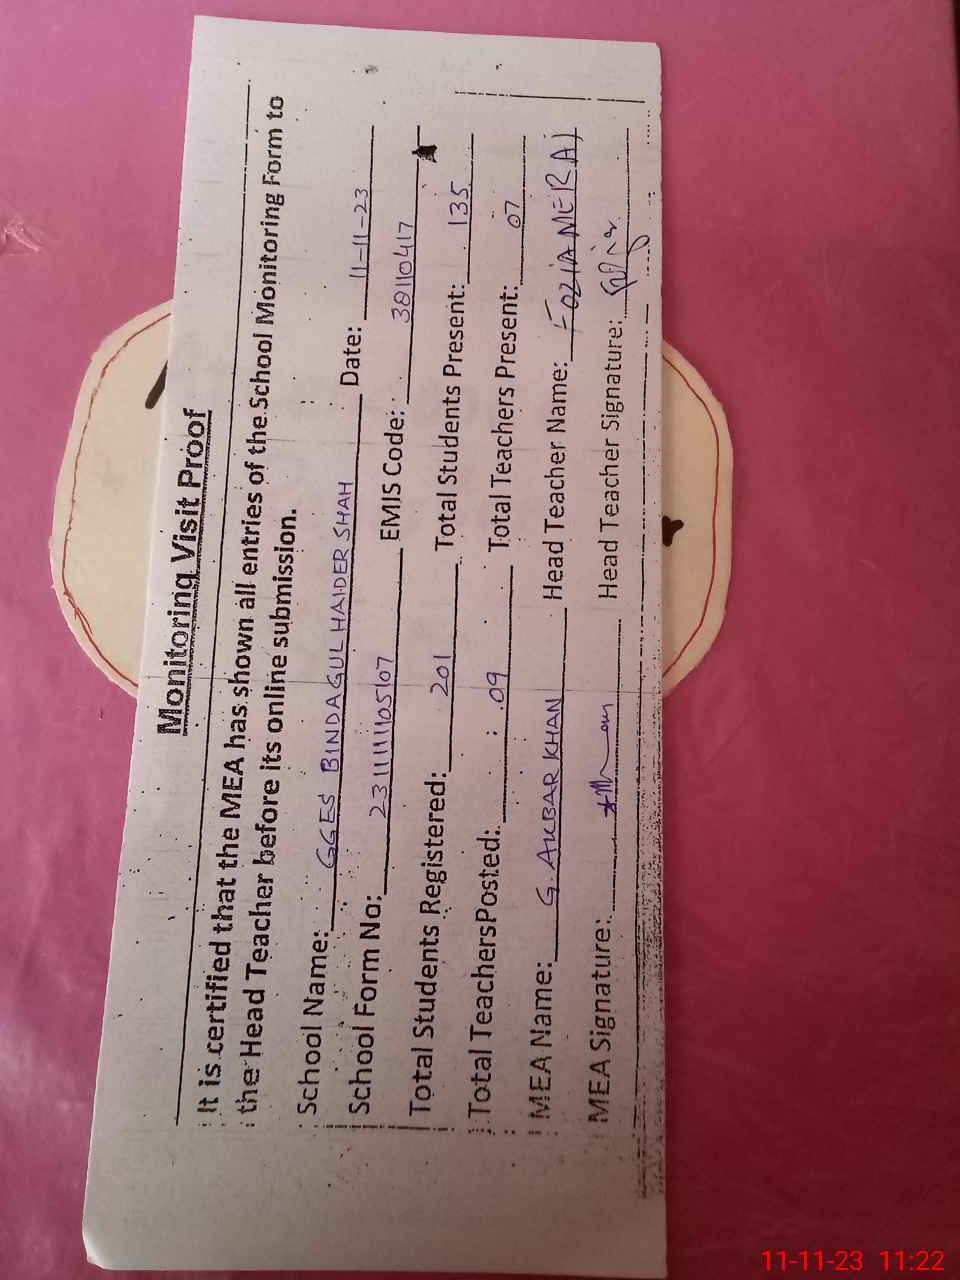 Monitoring Visit Proof
It is certified that the MEA has shown all entries of the School Monitoring Form to
the Head Teacher before its online submission.
School Name: GGES BINDAGULHAIDER SHAH Date: 11-11-23
School Form No: EMIS Code: 38110417
Total Students Registered: 201 Total Students Present: 135
Total Teachers Posted: 09 Total Teachers Present: 07
MEA Name: G. AKBAR KHAN Head Teacher Name: FOZIA MERAJ
MEA Signature: Head Teacher Signature:
11-11-23 11:22